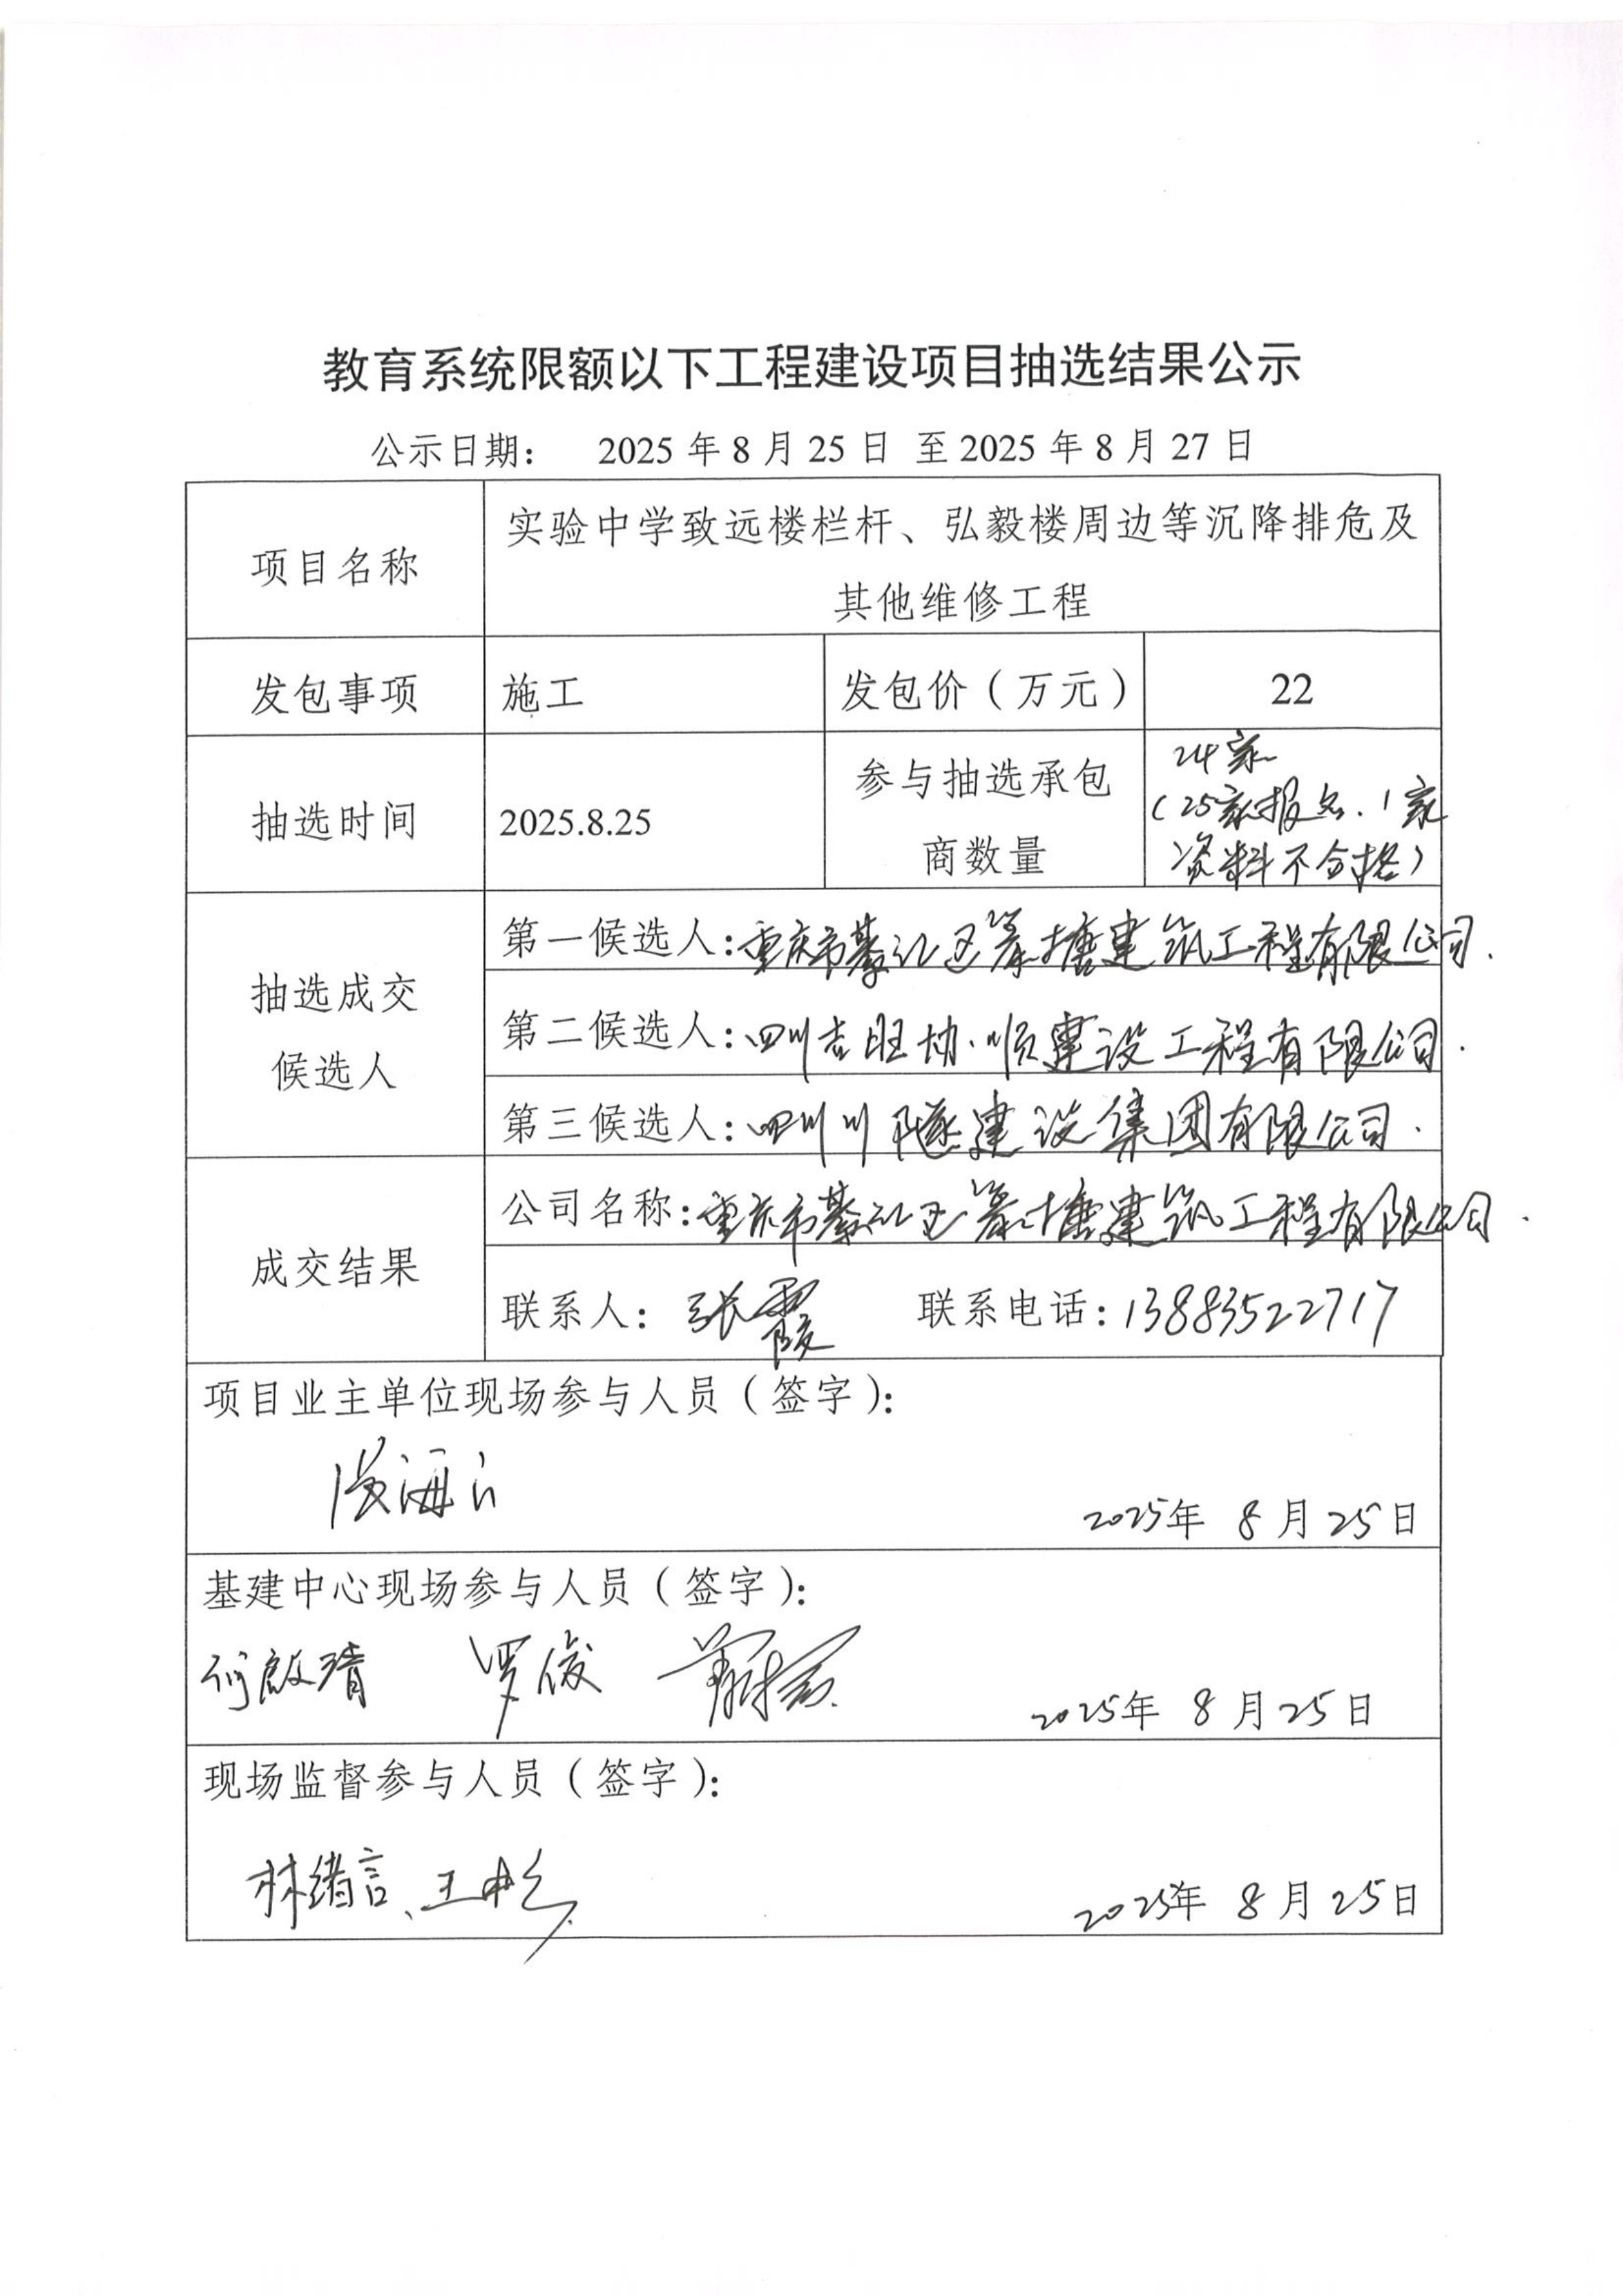 教育系统限额以下工程建设项目抽选结果公示
公示日期： 2025 年 8 月 25 日 至 2025 年 8 月 27 日
项目名称
实验中学致远楼栏杆、弘毅楼周边等沉降排危及
其他维修工程
发包事项
施工
发包价（万元）
22
抽选时间
2025.8.25
参与抽选承包
商数量
24家
（25家报名.1家
资料不合格）
抽选成交
候选人
第一候选人：重庆市綦江区篆塘建筑工程有限公司.
第二候选人：四川吉旺协顺建设工程有限公司.
第三候选人：四川川隧建设集团有限公司.
成交结果
公司名称：重庆市綦江区篆塘建筑工程有限公司.
联系人：张霞 联系电话：13883522717
项目业主单位现场参与人员（签字）：
2025年 8 月 25 日
基建中心现场参与人员（签字）：
何啟靖 罗俊
2025年 8 月 25 日
现场监督参与人员（签字）：
林绪言、王
2025年 8 月 25 日